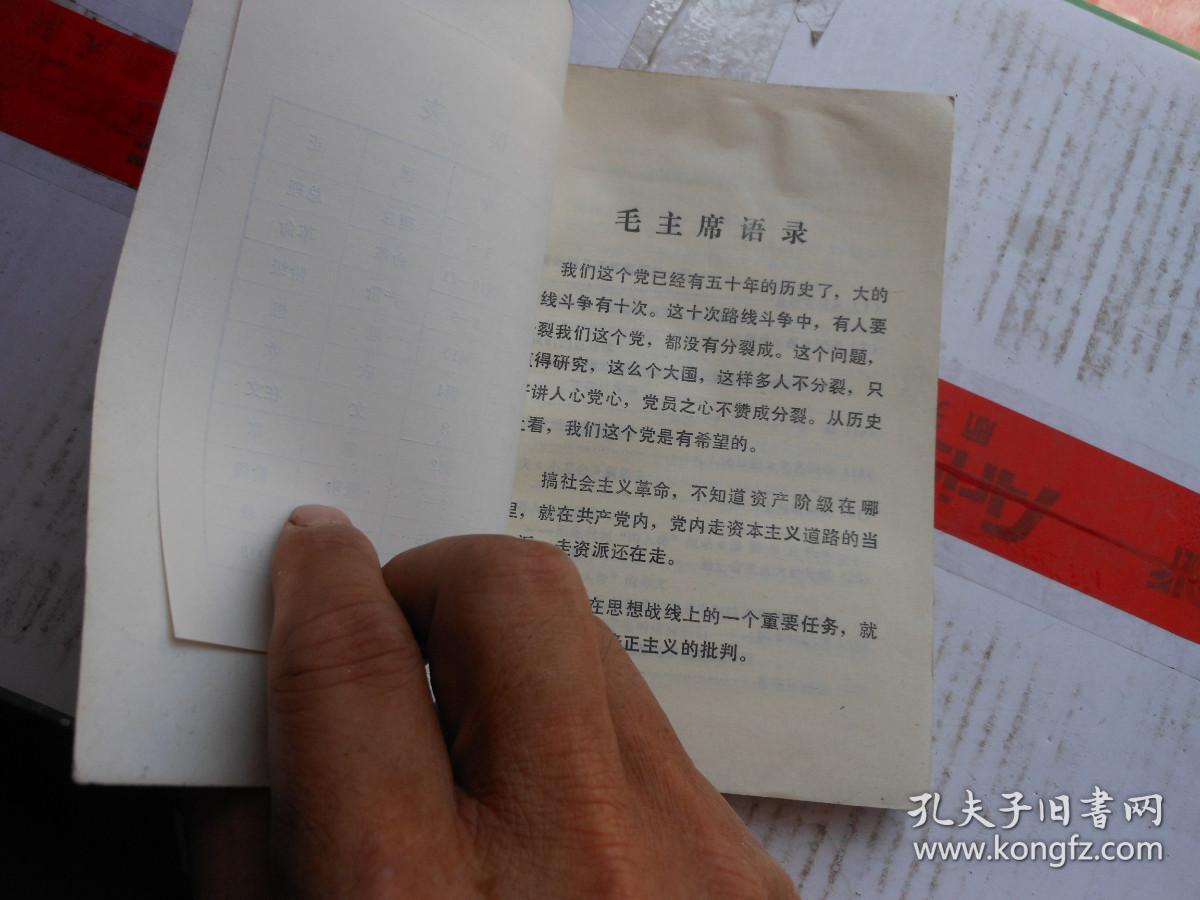 毛主席语录
我们这个党已经有五十年的历史了，大的
线斗争有十次。这十次路线斗争中，有人要
裂我们这个党，都没有分裂成。这个问题，
得研究，这么个大国，这样多人不分裂，只
讲人心党心，党员之心不赞成分裂。从历史
上看，我们这个党是有希望的。
搞社会主义革命，不知道资产阶级在哪
里，就在共产党内，党内走资本主义道路的当
派。走资派还在走。
在思想战线上的一个重要任务，就
正主义的批判。
孔夫子旧书网
www.kongfz.com